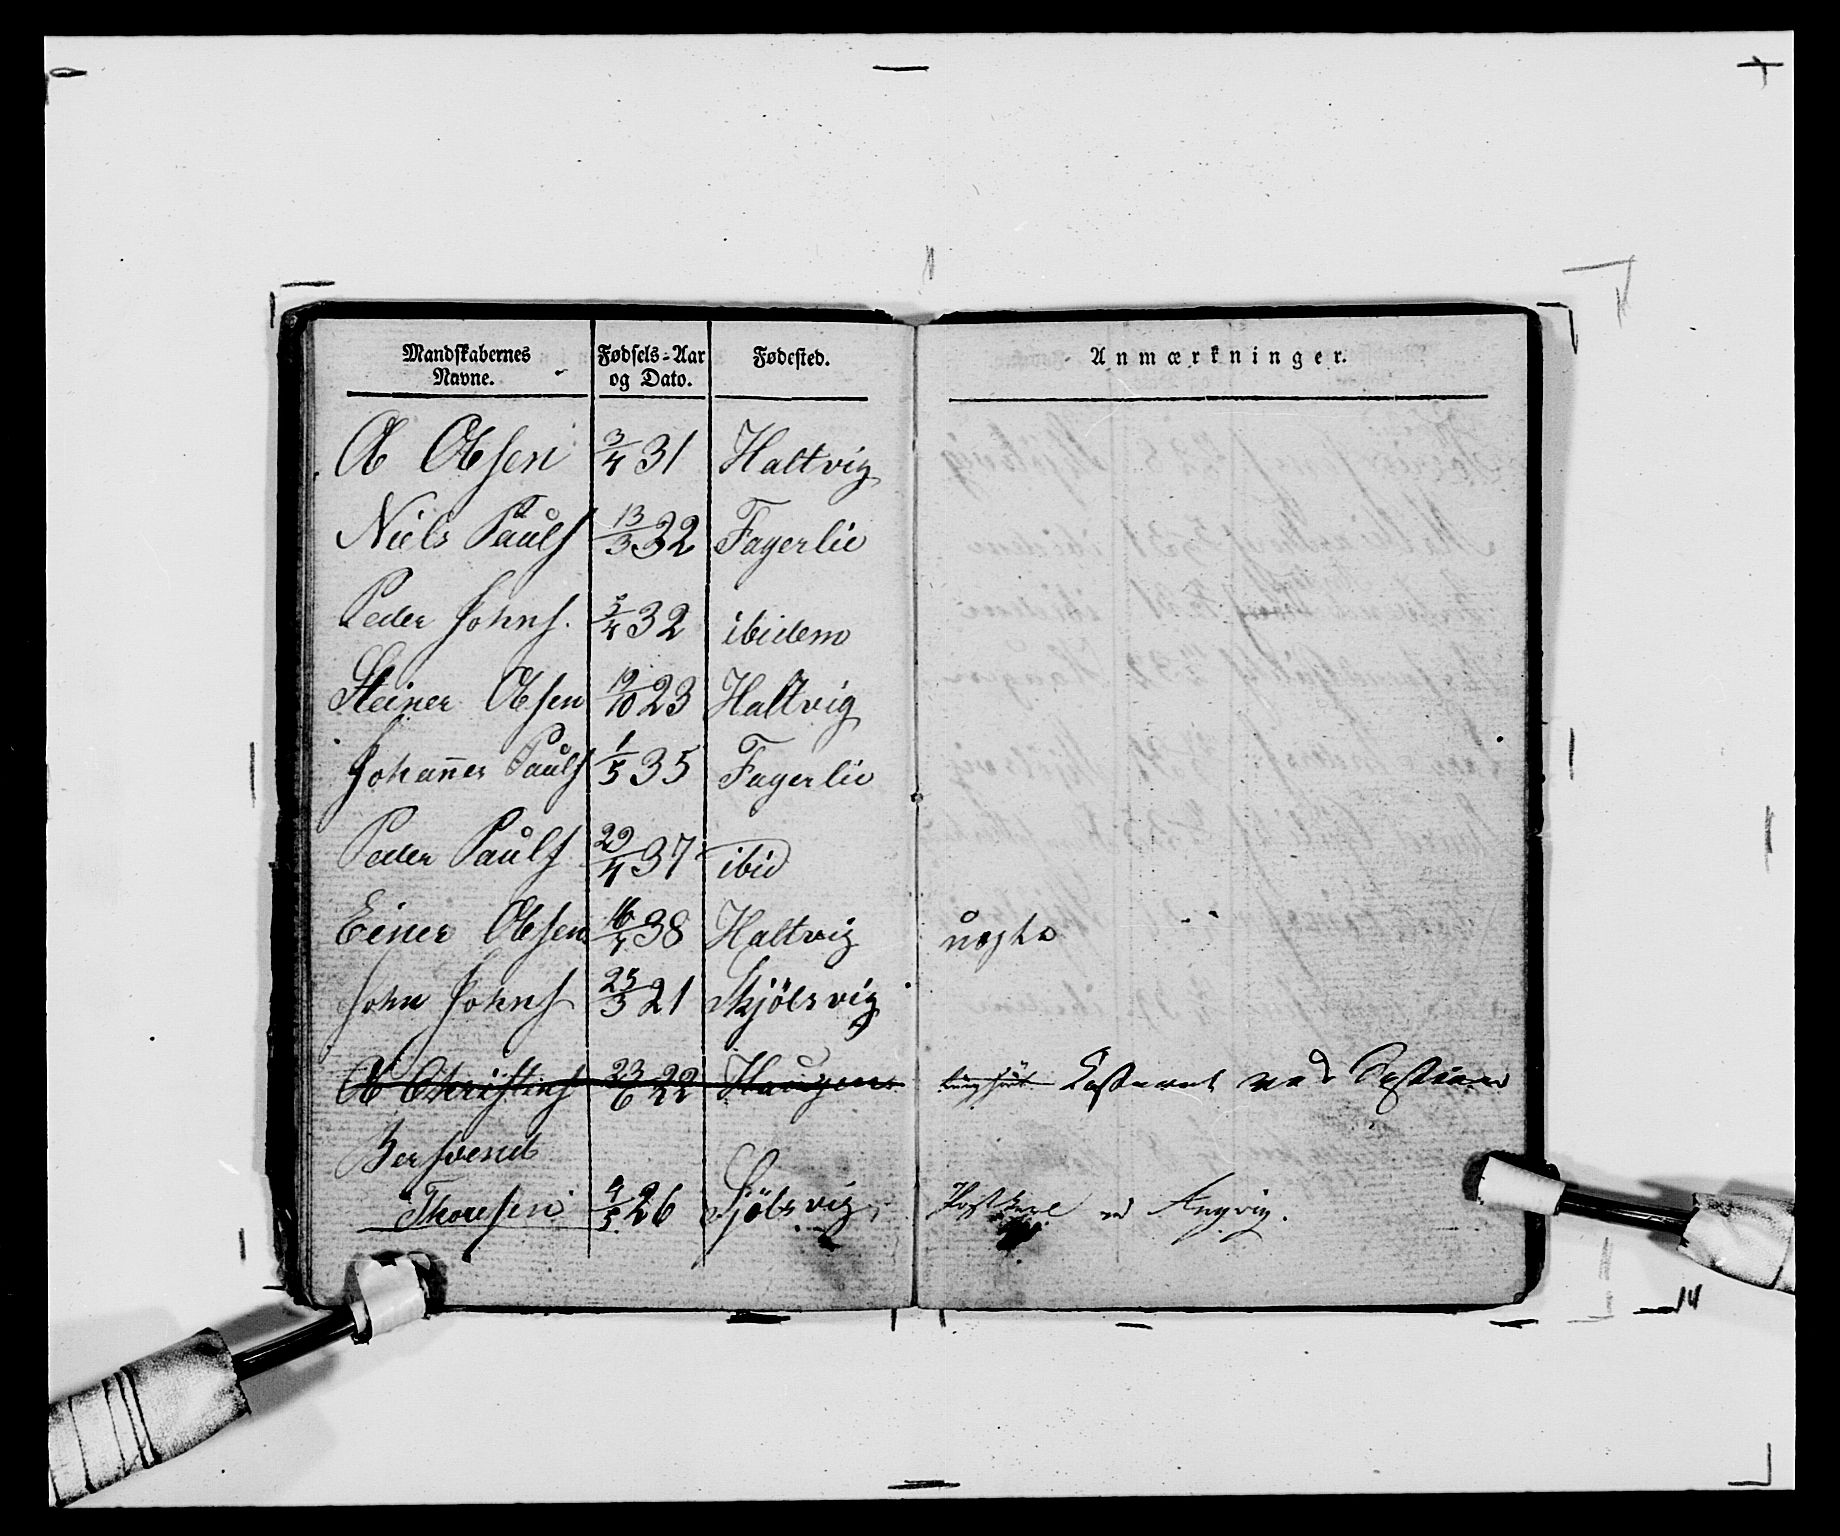 Mandskabernes Navne. Fødsels-Aar og Dato. Fødested. Anmærkninger.
Ol Olsen 3/4 31 Haltvig
Niels Pauls 13/3 32 Fagerlie
Peder Johns. 5/4 32 ibidem
Steiner Olsen 19/10 23 Haltvig
Johannes Pauls 1/5 35 Fagerlie
Peder Pauls 29/4 37 ibid
Einer Olsen 16/4 38 Haltvig uægte
John Johns 25/3 21 Skjölsvig
Ol Christens 23/6 22 Haugen
Bersvend
Thoresen 4/5 26 Sjölsvig Angvig.
14